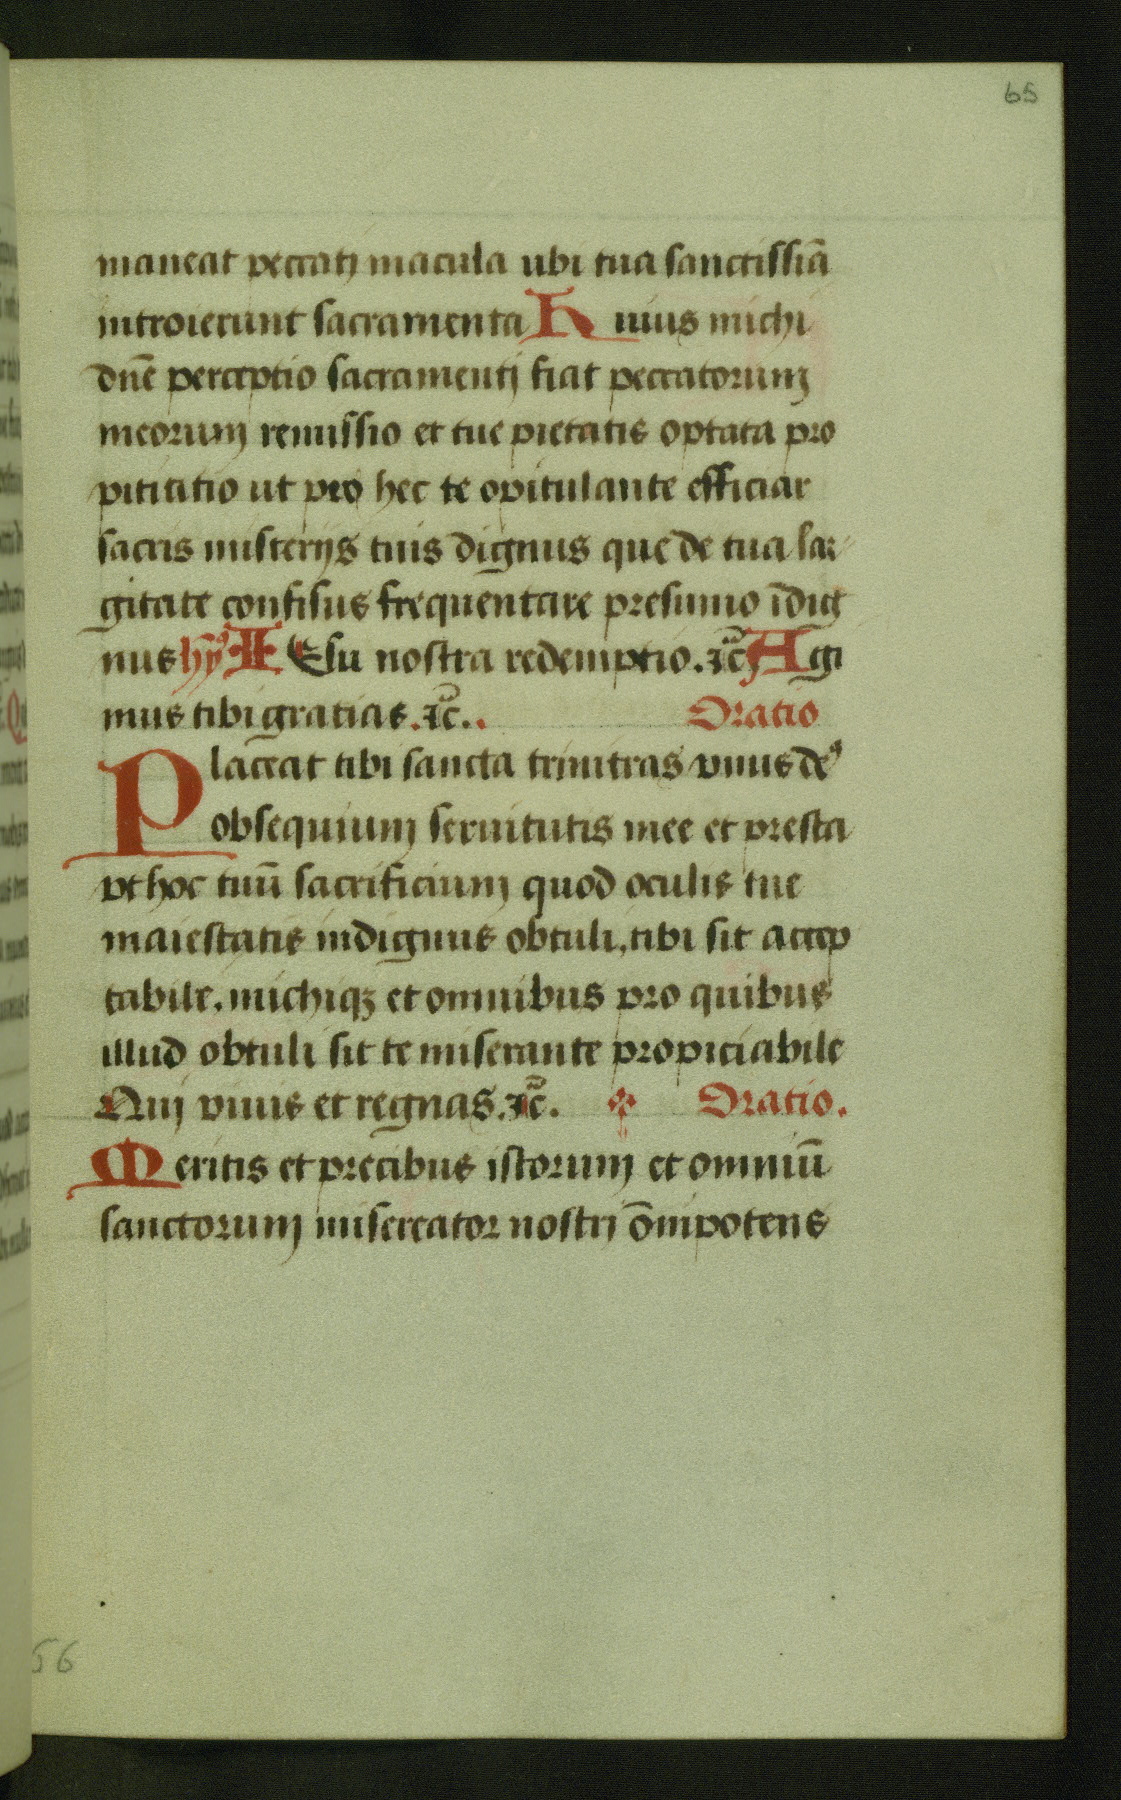 65
maneat peccatj macula ubi tua sanctissiā
introierunt sacramenta Huius michi
dn̄e perceptio sacramentj fiat peccatorum
meorum remissio et tue pietatis optata pro
pitititio ut pro hec te opitulante efficiar
sacris misterijs tuis dignus que de tua lar
gitate confisus frequentare presumo īdig
nus hȳꝰ IEsu nostra redemptio. ⁊c̄ Agi
mus tibi gratias. ⁊c̄.. Oratio
Placeat tibi sancta trinitras vnus deꝰ
obsequium seruitutis mee et presta
vt hoc tuū sacrificium quod oculis tue
maiestatis indignus obtuli, tibi sit accep
tabile. michiqꝫ et omnibus pro quibus
illud obtuli sit te miserante propiciabile
Quj viuis et regnas. ⁊c̄. Oratio.
Meritis et precibus istorum et omniū
sanctorum misereator nostrj ōmpotens
56